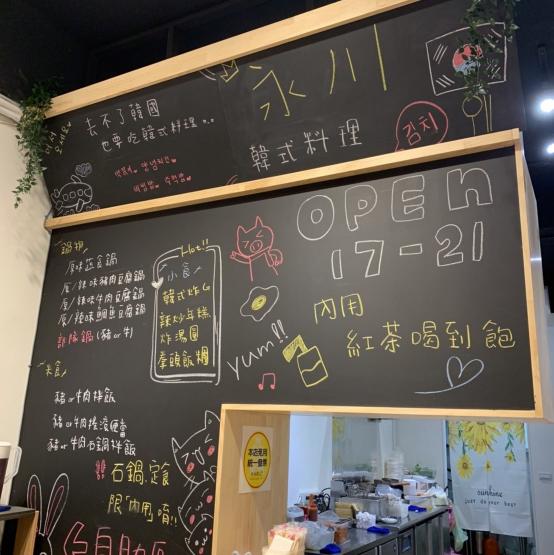 永川
韓式料理
去不了韓國
也要吃韓式料理
김치
OPEN
17-21
內用
紅茶喝到飽
yum!!
Hot!!
小食
韓式炸G
辣炒年糕
炸湯圓
拳頭飯糰
鍋物
原味蔬食鍋
原/辣味豬肉豆腐鍋
原/辣味牛肉豆腐鍋
原/辣味鯛魚豆腐鍋
部隊鍋(豬or牛)
米食
豬or牛肉拌飯
豬or牛肉石鍋拌飯
石鍋定食
限「內用」唷!!
自助區
本店免用
統一發票
sunshine
just do your best